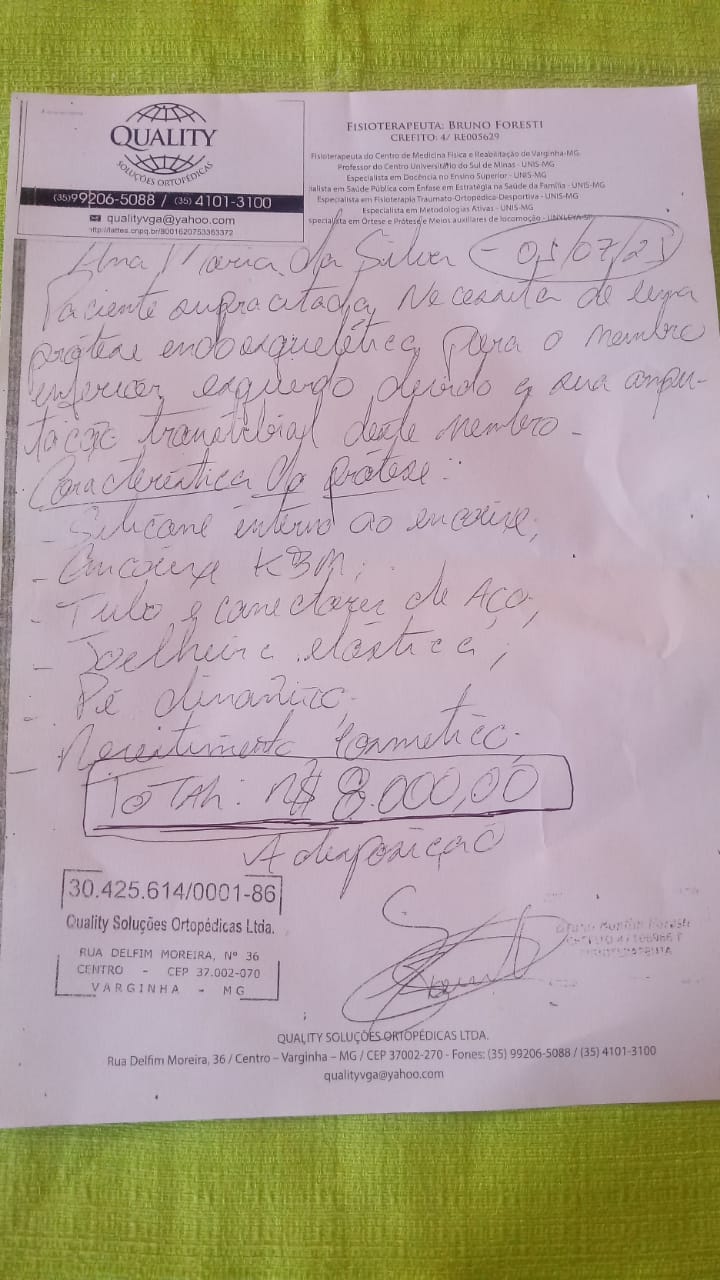 QUALITY
SOLUÇÕES ORTOPÉDICAS
(35)99206-5088 / (35) 4101-3100
qualityvga@yahoo.com
http://lattes.cnpq.br/8001620753363372
FISIOTERAPEUTA: BRUNO FORESTI
CREFITO: 4/ RE005629
Fisioterapeuta do Centro de Medicina Física e Reabilitação de Varginha-MG.
Professor do Centro Universitário do Sul de Minas - UNIS-MG
Especialista em Docência no Ensino Superior - UNIS-MG
ialista em Saúde Pública com Ênfase em Estratégia na Saúde da Família - UNIS-MG
Especialista em Fisioterapia Traumato-Ortopédica-Desportiva - UNIS-MG
Especialista em Metodologias Ativas - UNIS-MG
specialista em Órtese e Prótese e Meios auxiliares de locomoção -
Maria da Silva - 05/07/23
Paciente supracitada, necessita de uma
prótese endoesquelética para o membro
inferior esquerdo devido a sua ampu-
tação transtibial deste membro -
Característica da prótese:
- Silicone interno ao encaixe;
- Encaixe KBM;
- Tubo e conectores de Aço;
- Joelheira elástica;
- Pé dinâmico;
- Revestimento Cosmético.
TOTAL: R$ 8.000,00
A disposição
30.425.614/0001-86
Quality Soluções Ortopédicas Ltda.
RUA DELFIM MOREIRA, Nº 36
CENTRO - CEP 37.002-070
VARGINHA - MG
QUALITY SOLUÇÕES ORTOPÉDICAS LTDA.
Rua Delfim Moreira, 36 / Centro – Varginha – MG / CEP 37002-270 - Fones: (35) 99206-5088 / (35) 4101-3100
qualityvga@yahoo.com